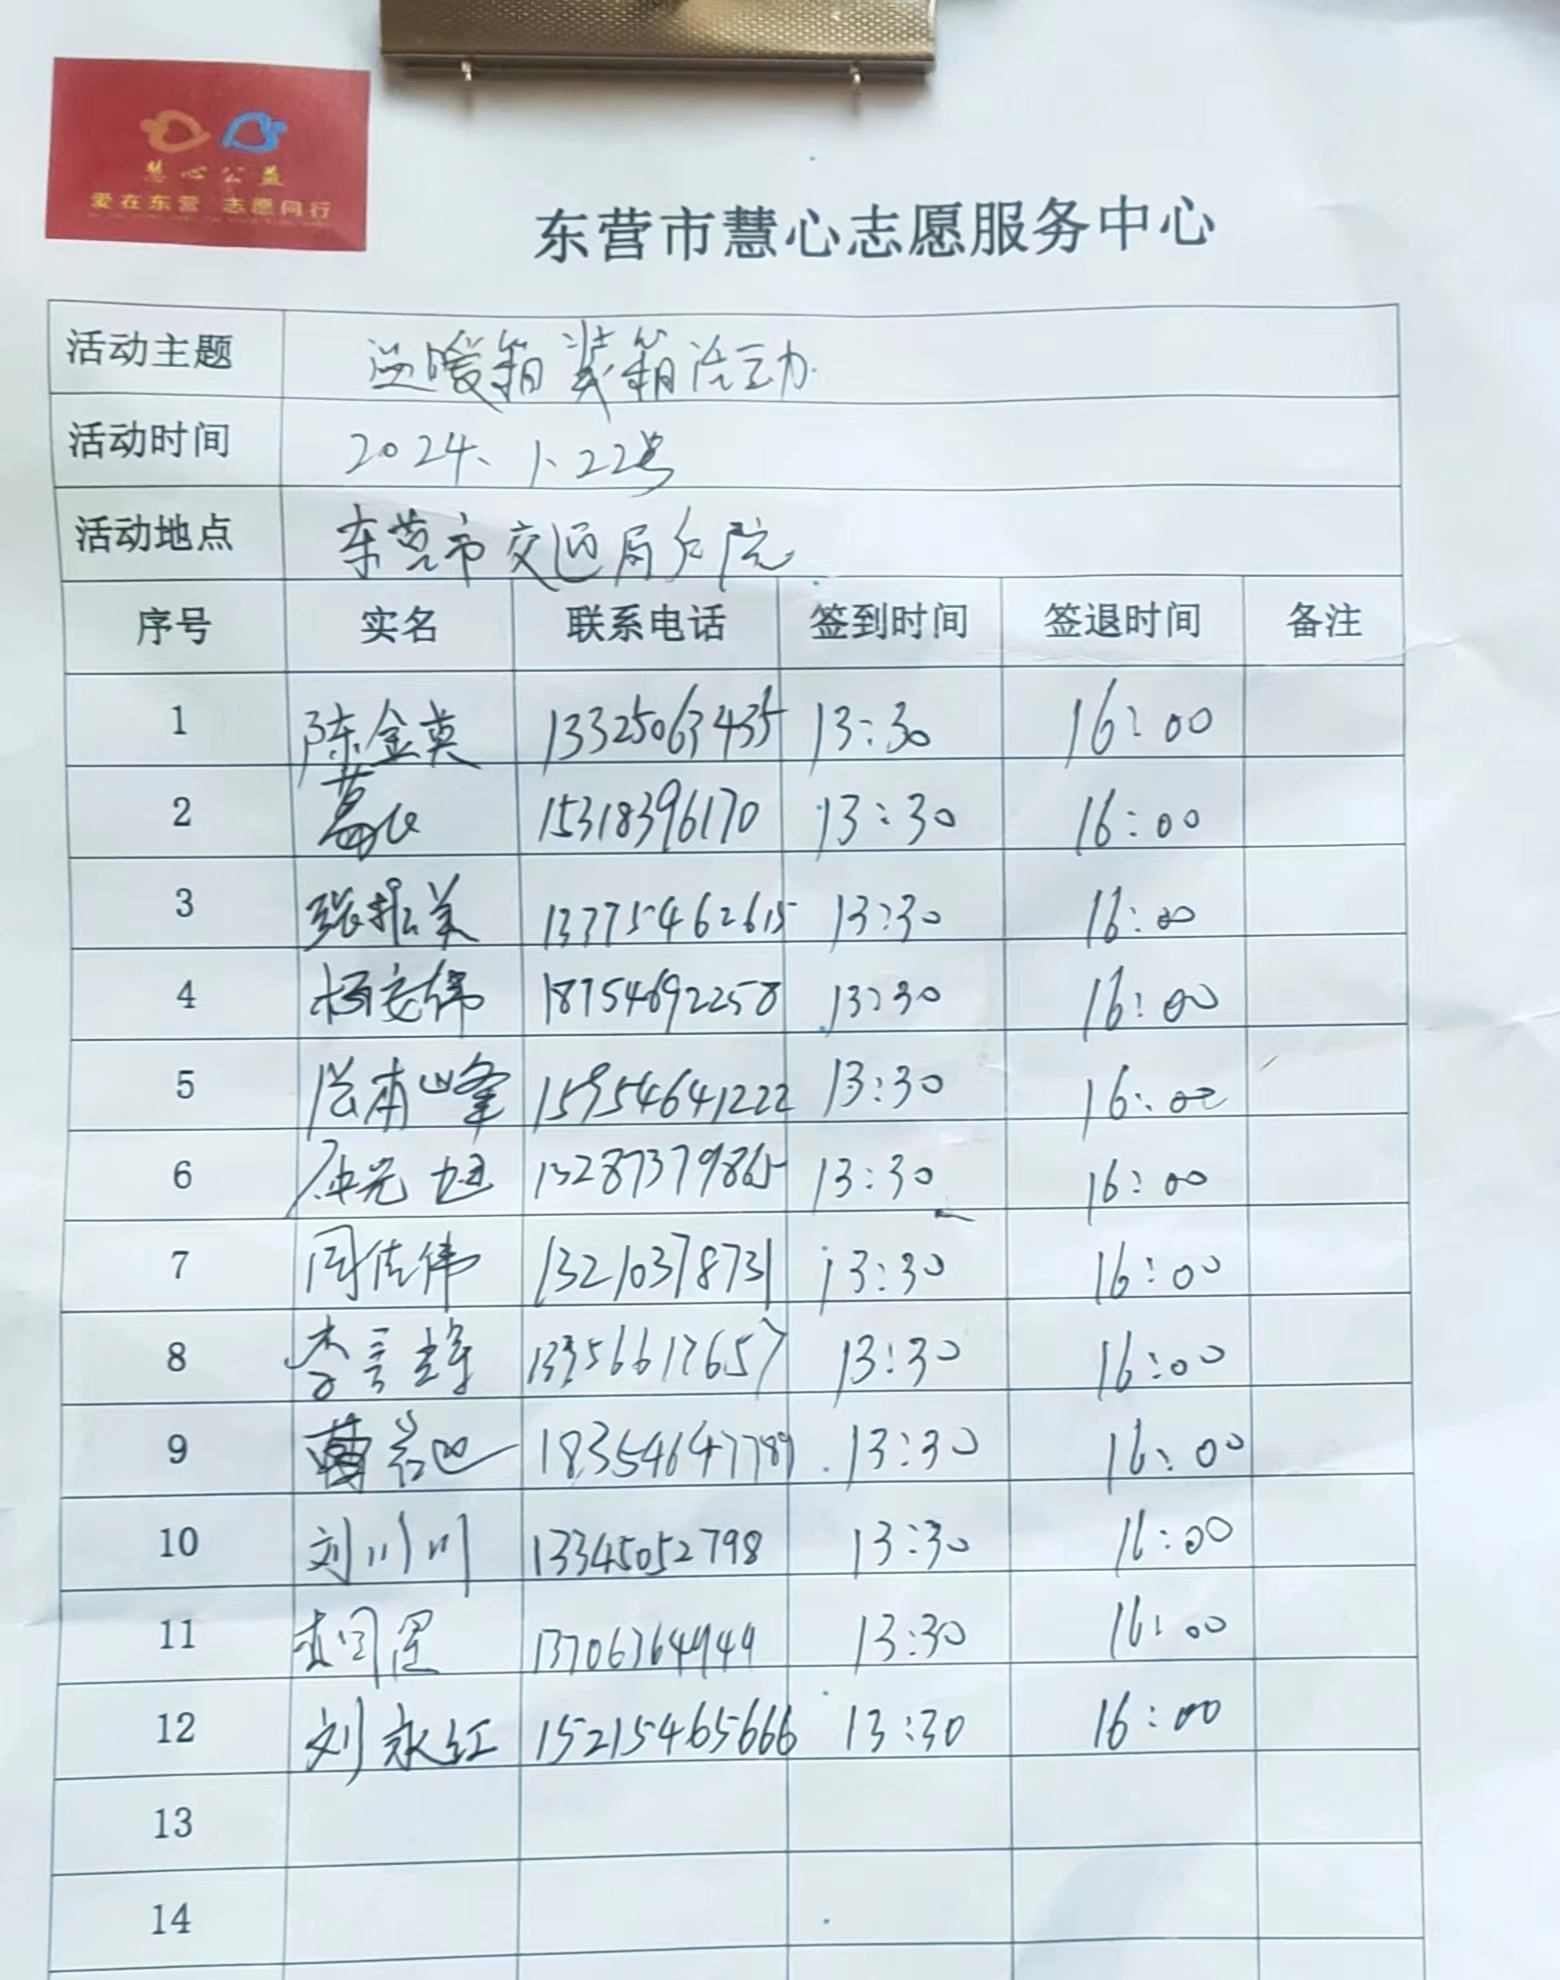 慧心公益
爱在东营 志愿同行
东营市慧心志愿服务中心
活动主题 暖箱装箱活动
活动时间 2024、1、22号
活动地点 东营市交通局后院
序号 实名 联系电话 签到时间 签退时间 备注
1 陈金英 13325063435 13:30 16:00
2 葛 15318396170 13:30 16:00
3 张振美 13375462615 13:30 16:00
4 杨安伟 18754692258 13:30 16:00
5 峰 15954641222 13:30 16:00
6 光旭 13287379865 13:30 16:00
7 周佳伟 13210378731 13:30 16:00
8 李言辉 13356617657 13:30 16:00
9 曹岩 18354647789 13:30 16:00
10 刘川川 13345052798 13:30 16:00
11 13706364949 13:30 16:00
12 刘永红 15215465666 13:30 16:00
13
14